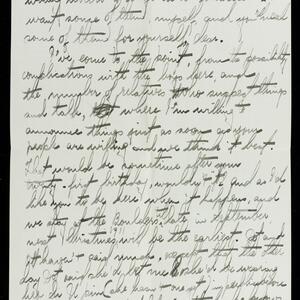 want some of them myself, and you need
some of them for yourself, dear.
I've come to the point, from possibility
complications with the boys here, and
the number of relatives who suspect things
and talk, where I'm willing to
announce things just as soon as your
people are willing and we think it best.
That would be sometime after your
twenty-first birthday, wouldn't it? and as I'd
like you to be here when it happens, and
we stay at the Boulders late in September
next Christmas will be the earliest. Dot and
I haven't said much, except that the other
day Dot said she'd bet me she'd be wearing